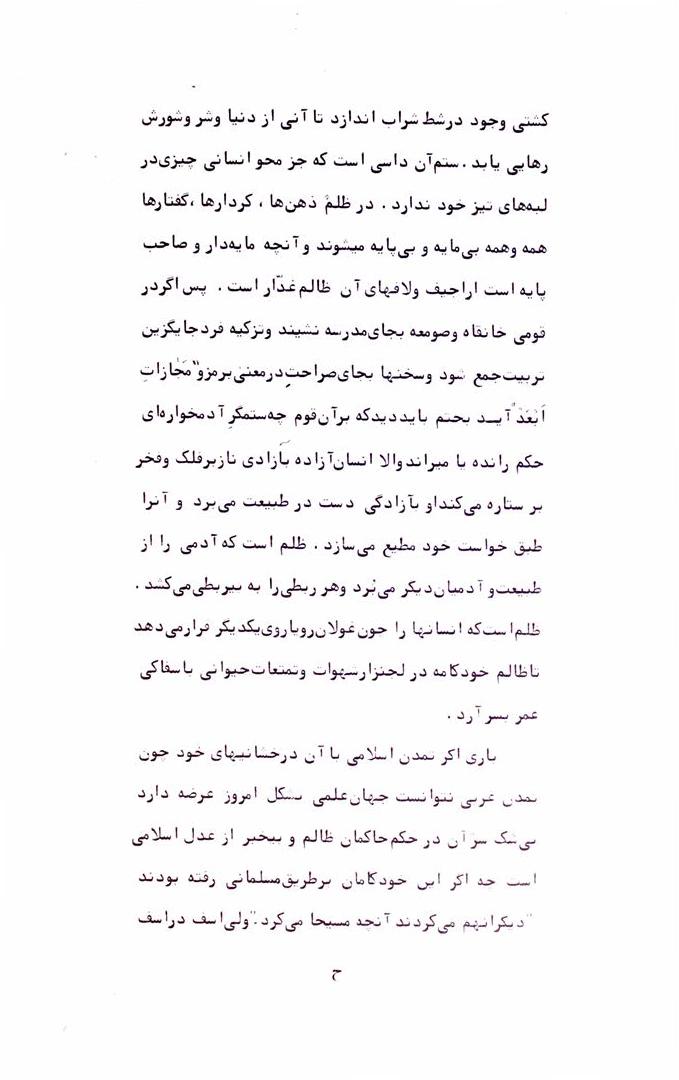 کشتی وجود درشط شراب اندازد تا آنی از دنیا وشر وشورش
رهایی یابد . ستم‌آن داسی است که جز محو انسانی چیزی‌در
لبه‌های تیز خود ندارد . در ظلم ذهن‌ها ، کردارها ،گفتارها
همه وهمه بی‌مایه و بی‌پایه میشوند و آنچه مایه‌دار و صاحب
پایه است اراجیف ولافهای آن ظالم‌غدّار است . پس اگردر
قومی خانقاه وصومعه بجای‌مدرسه نشیند وتزکیه فردجایگزین
تربیت‌جمع شود وسخنها بجای‌صراحتِ‌درمعنی‌برمزو"مَجٰازاتِ
اَبْعَدْ"آیـد بحتم باید دیدکه برآن‌قوم چه‌ستمگرِ آدمخواره‌ای
حکم رانده یا میراندوالا انسان‌آزاده بآزادی نازبرفلک وفخر
بر ستاره می‌کنداو بآزادگی دست در طبیعت می‌برد و آنرا
طبق خواست خود مطیع می‌سازد . ظلم است که آدمی را از
طبیعت‌و آدمیان‌دیگر می‌بُرد وهر ربطی‌را به بیربطی‌می‌کشد .
ظلم‌است‌که انسانها را چون‌غولان‌روباروی‌یکدیگر قرارمی‌دهد
تاظالم خودکامه در لجنزارشهوات وتمتعات‌حیوانی باسفاکی
عمر بسرآرد .
باری اگر تمدن اسلامی با آن درخشانیهای خود چون
تمدن غربی نتوانست جهان‌علمی بشکل امروز عرضه دارد
بی‌شک سرّآن در حکم‌حاکمان ظالم و بیخبر از عدل اسلامی
است چه اگر این خودکامان برطریق‌مسلمانی رفته بودند
"دیگرانهم می‌کردند آنچه مسیحا می‌کرد."ولی‌اسف دراسف
ح